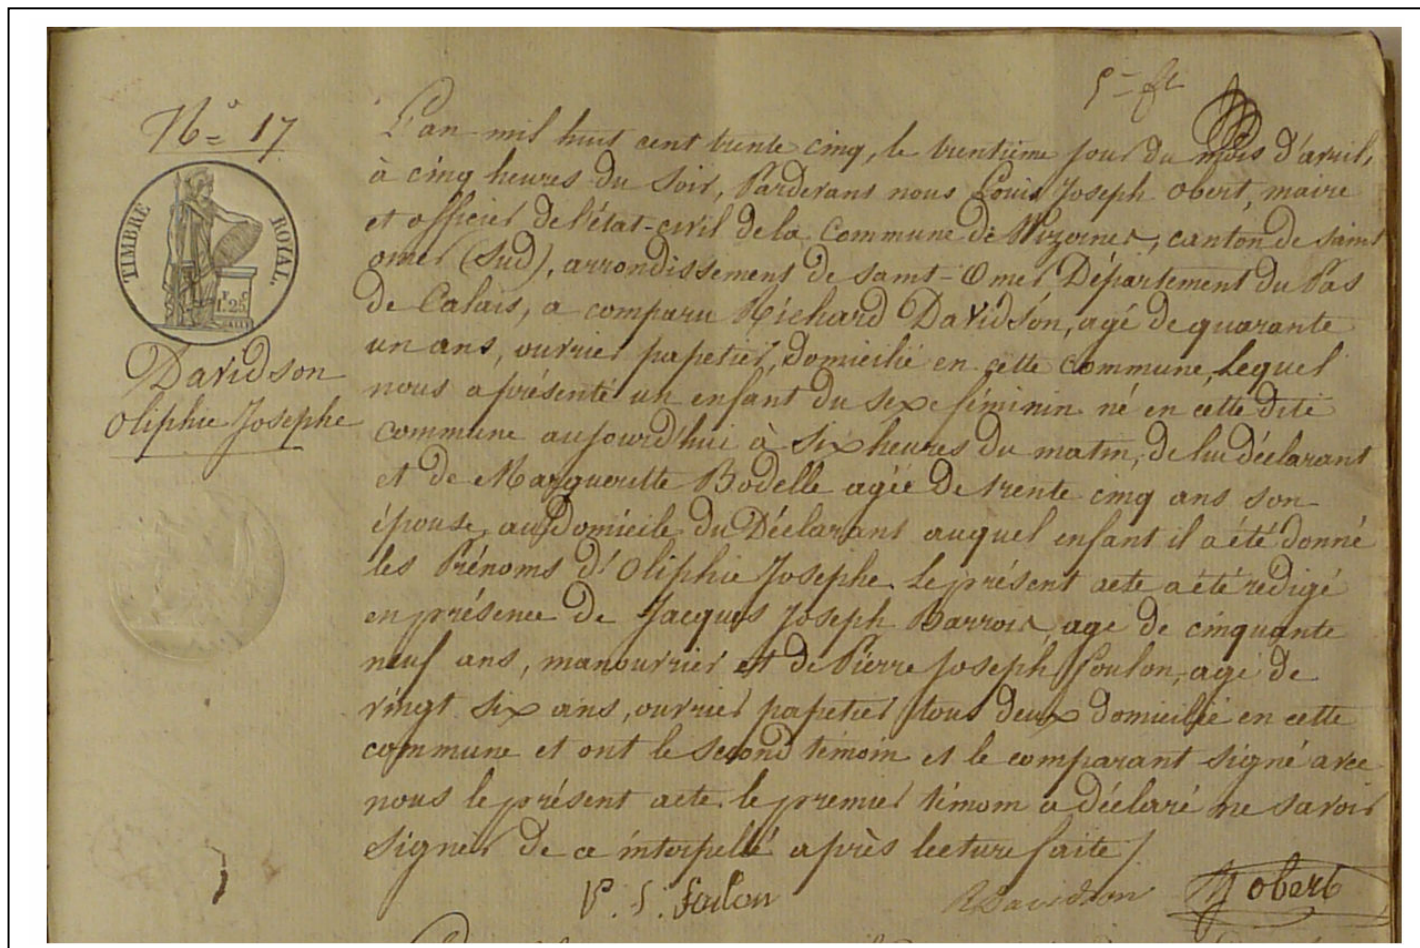 5 - fl
N° 17
TIMBRE ROYAL.
1.25
Davidson
Oliphie Josephe
L'an mil huit cent trente cinq, le trentième jour du mois d'avril,
à cinq heures du soir, Pardevant nous Louis Joseph Obert, maire
et officier de l'état-civil de la Commune de Wizernes, canton de saint
omer (Sud), arrondissement de saint-Omer Département du Pas
de Calais, a comparu Richard Davidson, agé de quarante
un ans, ouvrier papetier, domicilié en cette commune, Lequel
nous a présenté un enfant du sexe féminin né en cette dite
commune aujourd'hui à six heures du matin, de lui déclarant
et de Marguerette Bodelle agée de trente cinq ans son
épouse, au domicile du Déclarant auquel enfant il a été donné
les Prénoms d'Oliphie Josephe. Le présent acte a été rédigé
en présence de Jacques Joseph Barrois, age de cinquante
neuf ans, manouvrier et de Pierre Joseph Foulon, agé de
vingt six ans, ouvrier papetier tous deux domicilié en cette
commune et ont le second témoin et le comparant signé avec
nous le présent acte. le premier témoin a déclaré ne savoir
signer de ce interpellé après lecture faite /.
P. J. foulon
R Davidson
obert